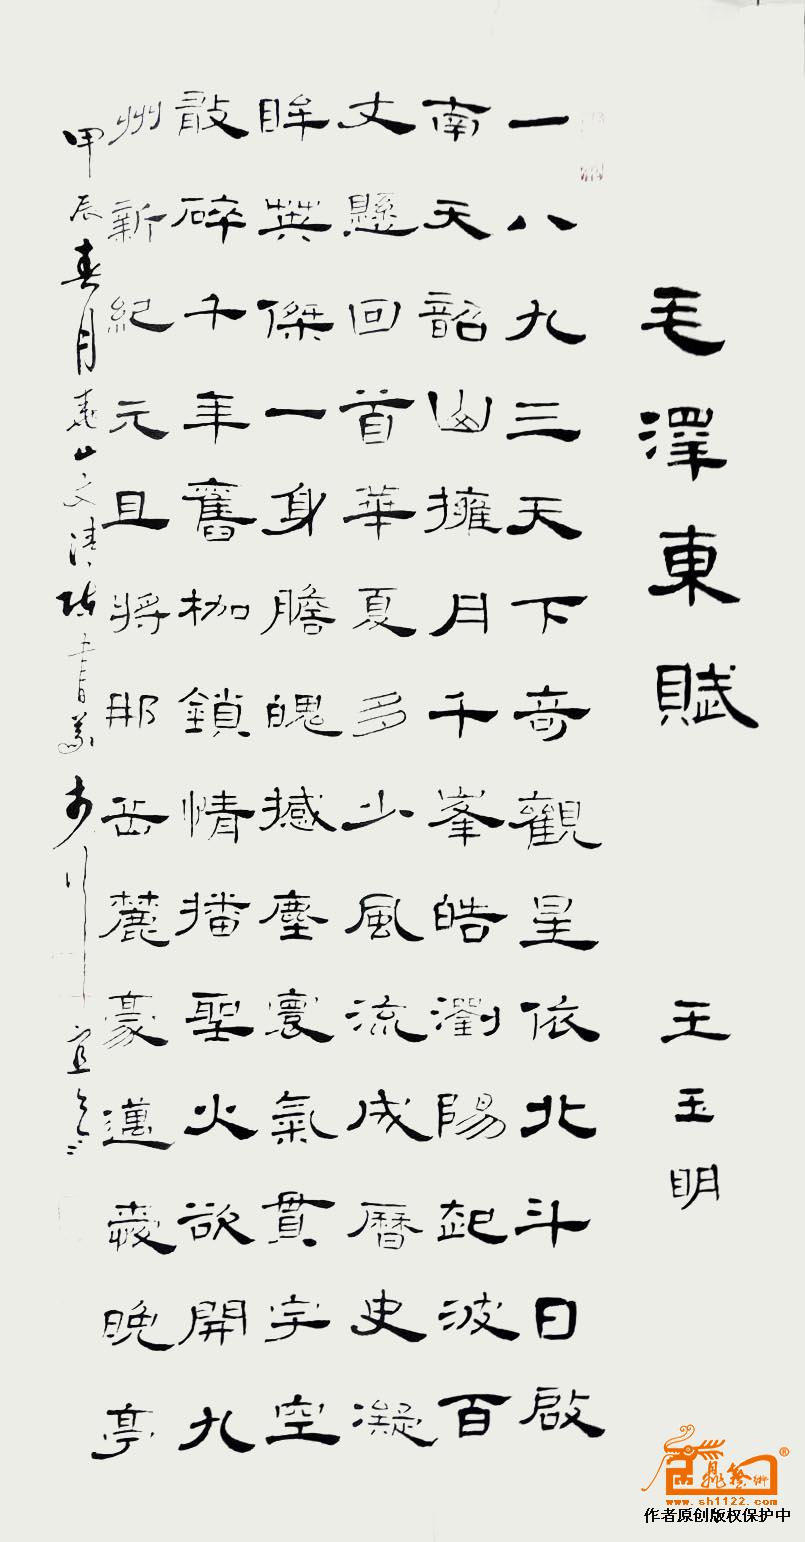 毛澤東賦 王玉明
一八九三天下奇觀星依北斗日啟
南天韶山擁月千峯皓瀏陽起波百
丈懸回首華夏多少風流成曆史凝
眸英傑一身膽魄撼塵寰氣貫宇空
敢碎千年舊枷鎖情播聖火欲開九
州新紀元且將那岳麓豪邁歲晚亭
甲辰春月
www.sh1122.com
作者原创版权保护中